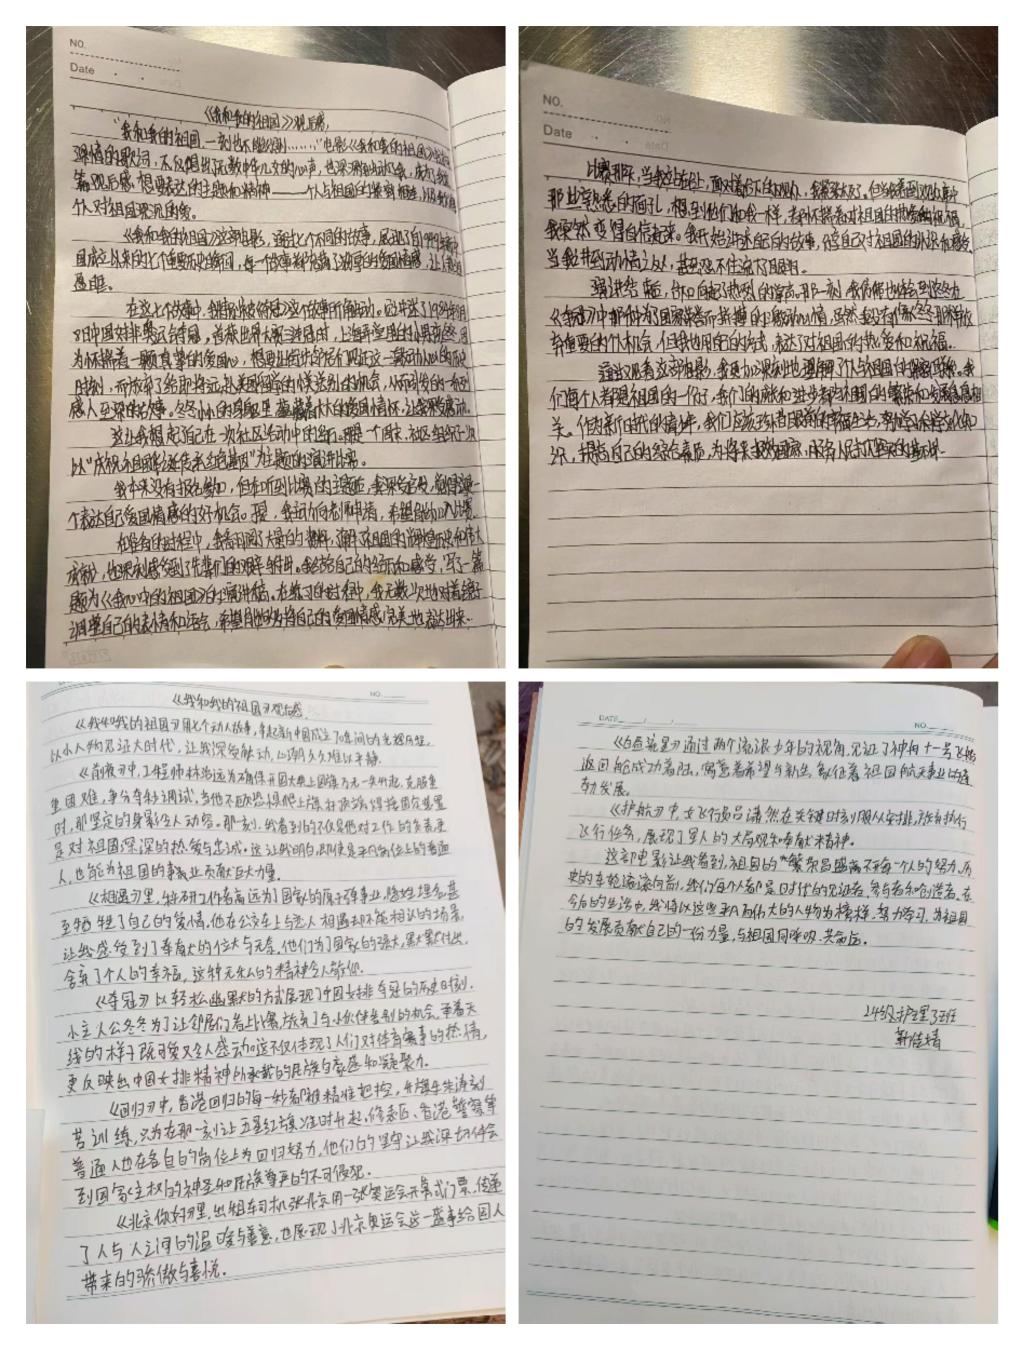 NO.
Date
《我和我的祖国》观后感
"我和我的祖国,一刻也不能分割……"电影《我和我的祖国》
深情的歌词,不仅唱出无数中华儿女的心声,也深深
篇观后感想要表达的主题和精神——个人与祖国的紧密相连,以及
个人对祖国深沉的爱。
《我和我的祖国》这部电影,通过七个不同的故事,展现了自1949年新中
国成立以来的七个重要历史瞬间,每一个故事都充满了浓厚的爱国情感,让人
在这七个故事中,我最被《夺冠》这个故事所触动。
感人至深的故事。冬冬小小的身躯里蕴藏着大大的爱国情怀,让我深受感动。
这让我想起了自己在一次社区活动中的经历。那是一个周末,社区组织了一次
以"庆祝祖国华诞,传承红色基因"为主题的演讲比赛。
我本来没有报名参加,但在听到比赛的主题后,我深受启发,觉得这是一
个表达自己爱国情感的好机会。于是,我主动向老师申请,希望能加入比赛。
在准备的过程中,我查阅了大量的资料,了解了祖国的辉煌历史和伟大
成就,也深刻感受到了先辈们的艰辛与付出。我结合自己的经历和感受,写了一篇
题为《我心中的祖国》的演讲稿。在练习的过程中,我无数次地对着镜子
调整自己的表情和语气,希望能够将自己的爱国情感完美地表达出来。
NO.
Date
比赛那天,当我站在台上,面对着台下的观众,我紧张极了。但当我看到观众席中
那些熟悉的面孔,想到他们和我一样,都怀揣着对祖国的热爱和祝福,
我突然变得自信起来。我开始讲述自己的故事,
当我讲到动情之处,甚至忍不住流下了眼泪。
演讲结束后,台下响起了热烈的掌声。那一刻,我仿佛也体会到了冬冬在
《夺冠》中那种为了国家荣誉而拼搏的激动心情。虽然我没有像冬冬那样放
弃重要的个人机会,但我也用自己的方式,表达了对祖国的热爱和祝福。
通过观看这部电影,我更加深刻地理解了个人与祖国的紧密联系。我
们每个人都是祖国的一份子,我们的成就和进步都与祖国的繁荣和发展息息相
关。作为新时代的青年,我们应该珍惜眼前的幸福生活,努力学习科学文化知
识,提高自己的综合素质,为将来报效国家,服务人民打下坚实的基础。
NO.
《我和我的祖国》观后感
《我和我的祖国》用七个动人故事,串起新中国成立70年间的光辉历程,
以小人物见证大时代,让我深受触动,心潮久久难以平静。
《前夜》中,工程师林治远为确保开国大典上国旗万无一失升起,克服重
重困难,争分夺秒调试。当他不顾恐惧爬上旗杆顶端焊接阻断装置
时,那坚定的身影令人动容。那一刻,我看到的不仅是他对工作的负责,更
是对祖国深深的热爱与忠诚。这让我明白,即使是平凡岗位上的普通
人,也能为祖国的事业贡献巨大力量。
《相遇》里,科研工作者高远为了国家的原子弹事业,隐姓埋名,甚
至牺牲了自己的爱情。他在公交车上与恋人相遇却不能相认的场景,
让我感受到了奉献的伟大与无奈。他们为了国家的强大,默默付出,
舍弃了个人的幸福,这种无私的精神令人敬仰。
《夺冠》以轻松幽默的方式展现了中国女排夺冠的历史时刻。
小主人公冬冬为了让邻居们看上比赛,放弃了与小伙伴告别的机会,举着天
线的样子既可爱又令人感动。这不仅体现了人们对体育赛事的热情,
更反映出中国女排精神所承载的民族自豪感和凝聚力。
《回归》中,香港回归的每一秒都被精准把控,升旗手朱涛刻
苦训练,只为在那一刻让五星红旗准时升起,修表匠、香港警察等
普通人也在各自的岗位上为回归努力。他们的坚守让我深切体会
到国家主权的神圣和民族尊严的不可侵犯。
《北京你好》里,出租车司机张北京用一张奥运会开幕式门票,传递
了人与人之间的温暖与善意,也展现了北京奥运会这一盛事给国人
带来的骄傲与喜悦。
DATE
NO.
《白昼流星》通过两个流浪少年的视角,见证了神舟十一号飞船
返回舱成功着陆,寓意着希望与新生,象征着祖国航天事业的蓬
勃发展。
《护航》中,女飞行员吕潇然在关键时刻服从安排,
飞行任务,展现了军人的大局观和奉献精神。
这部电影让我看到,祖国的繁荣昌盛离不开每一个人的努力。历
史的车轮滚滚向前,我们每个人都是时代的见证者、参与者和创造者。在
今后的生活中,我将以这些平凡而伟大的人物为榜样,努力学习,为祖国
的发展贡献自己的一份力量,与祖国同呼吸、共命运。
24级护理3班
靳佳婧